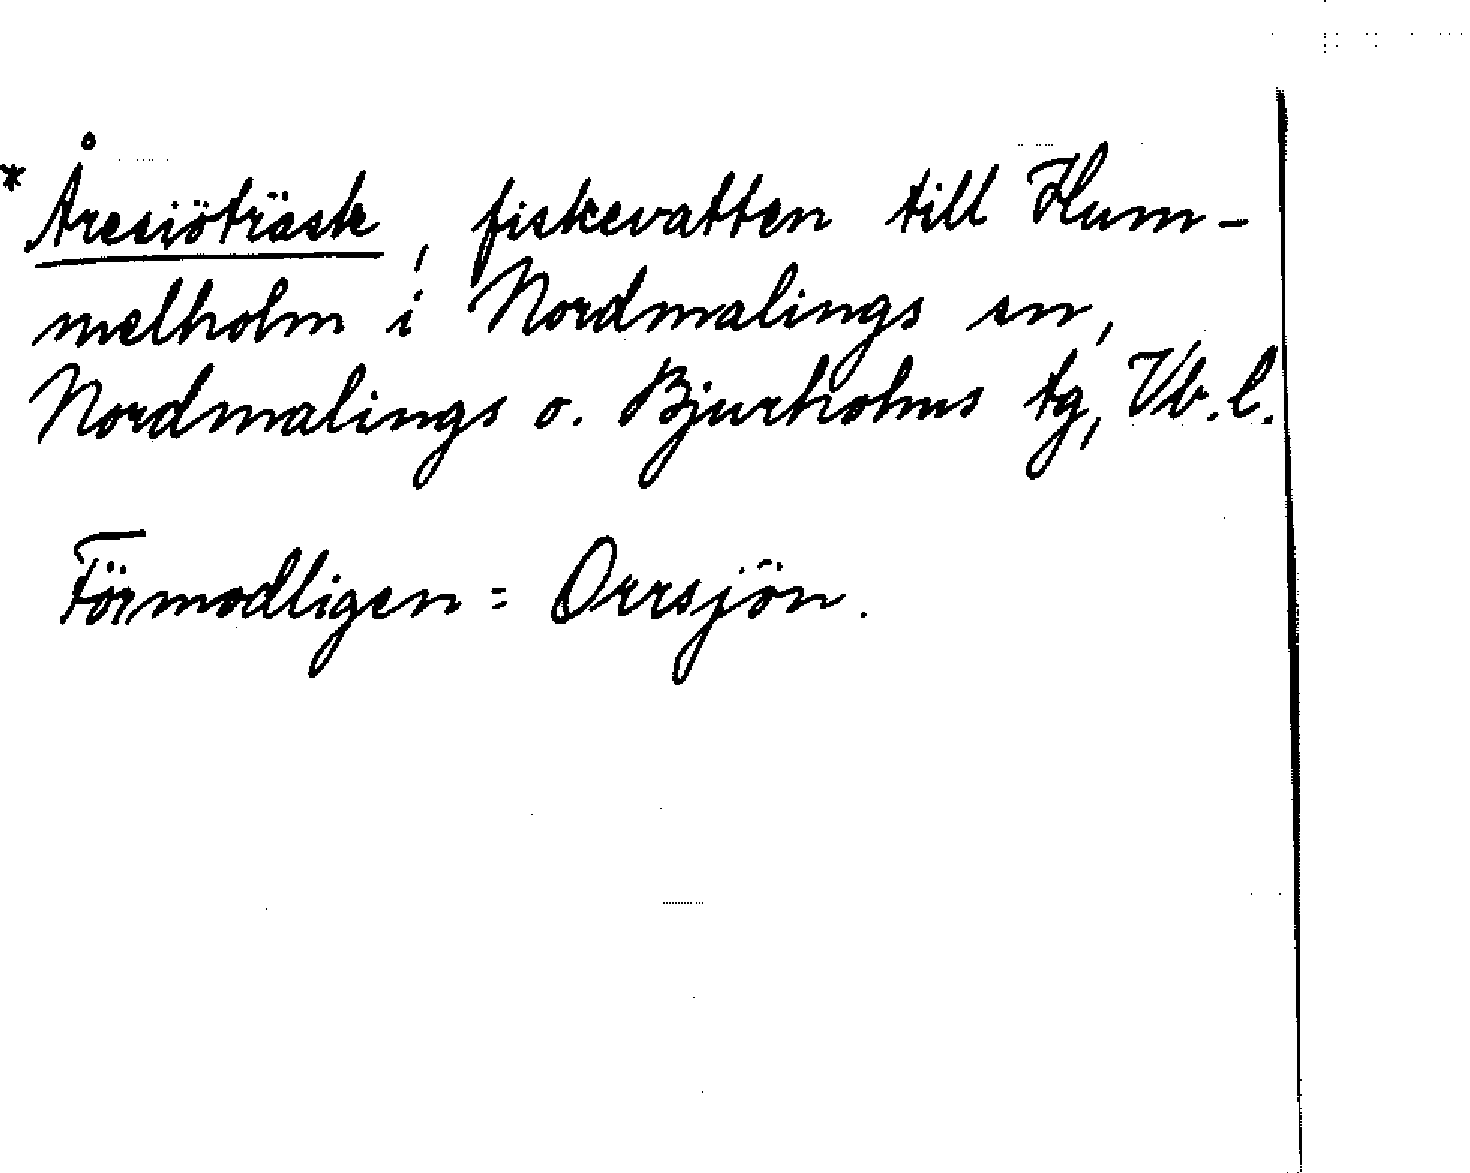 * Åresiöträsk, fiskevatten till Hum-
melholm i Nordmalings sn,
Nordmalings o. Bjurholms tg, Vb. l.
Förmodligen = Orrsjön.